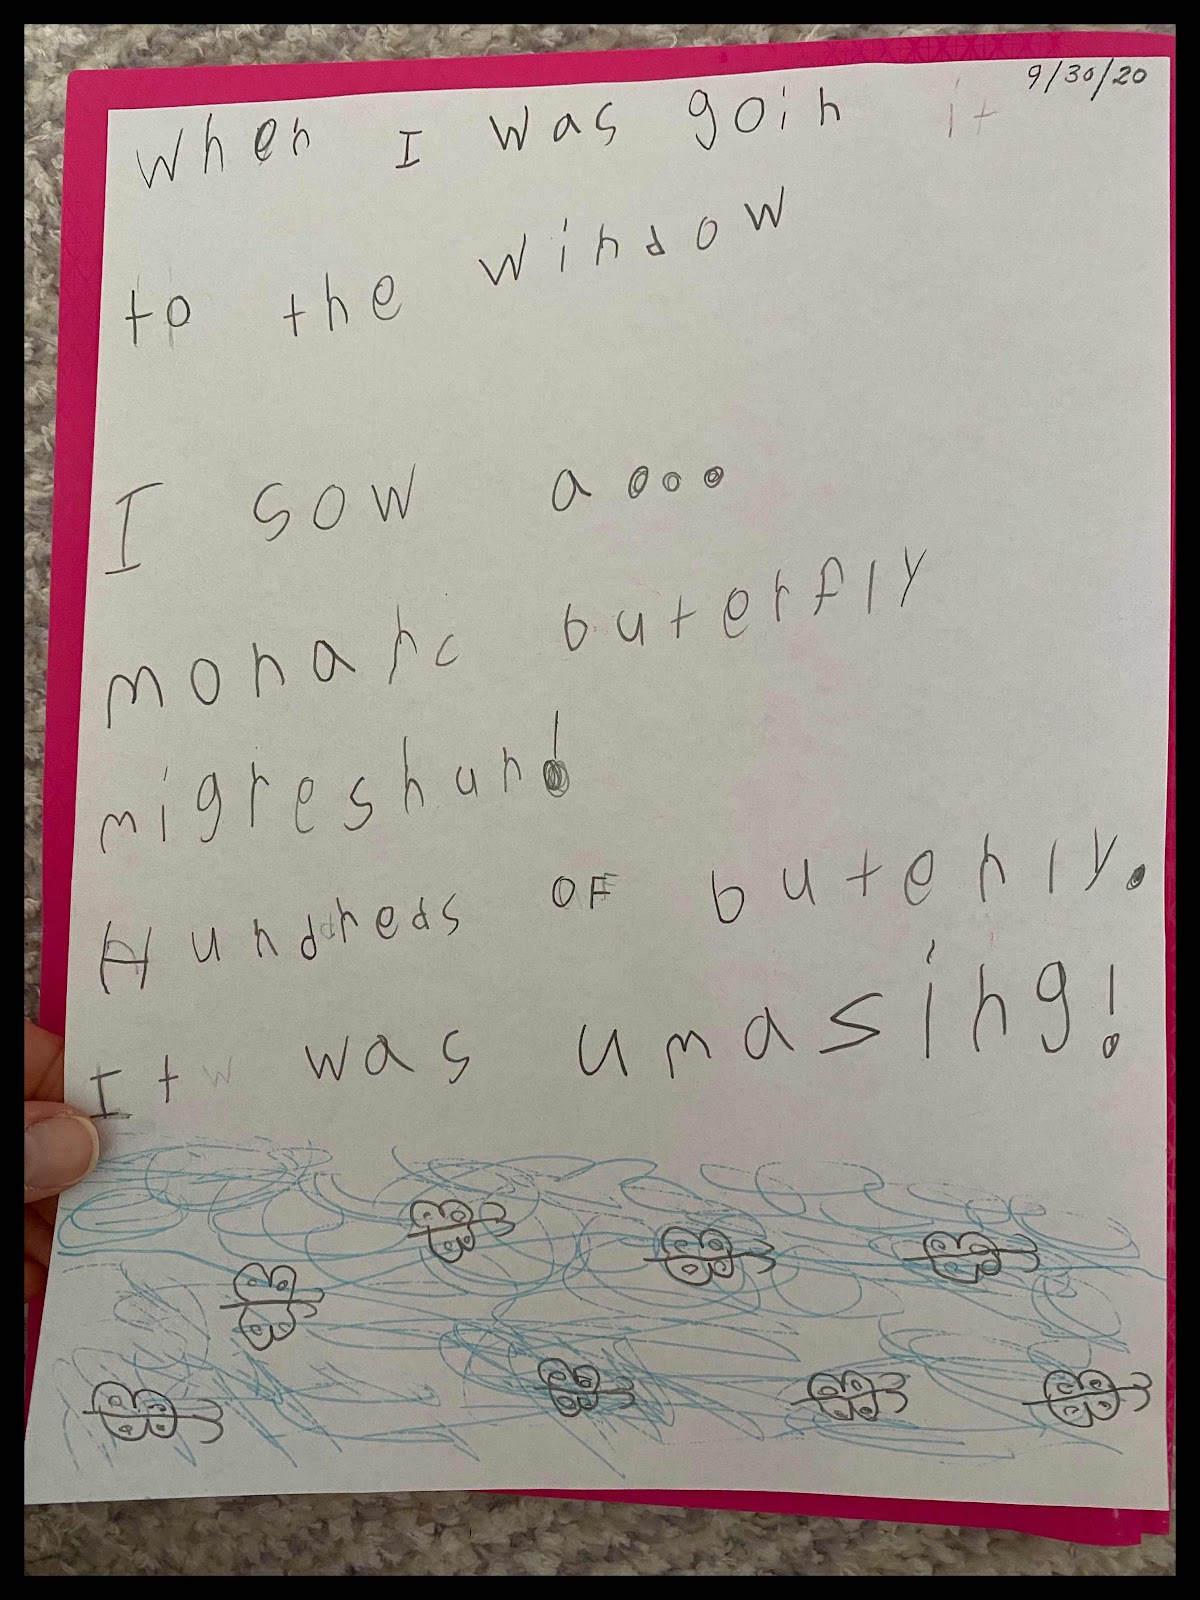 9/30/20
When I was goin it
to the window
I sow a...
monarc buterfly
migreshun!
Hundreds OF buterly.
It w was umasing!